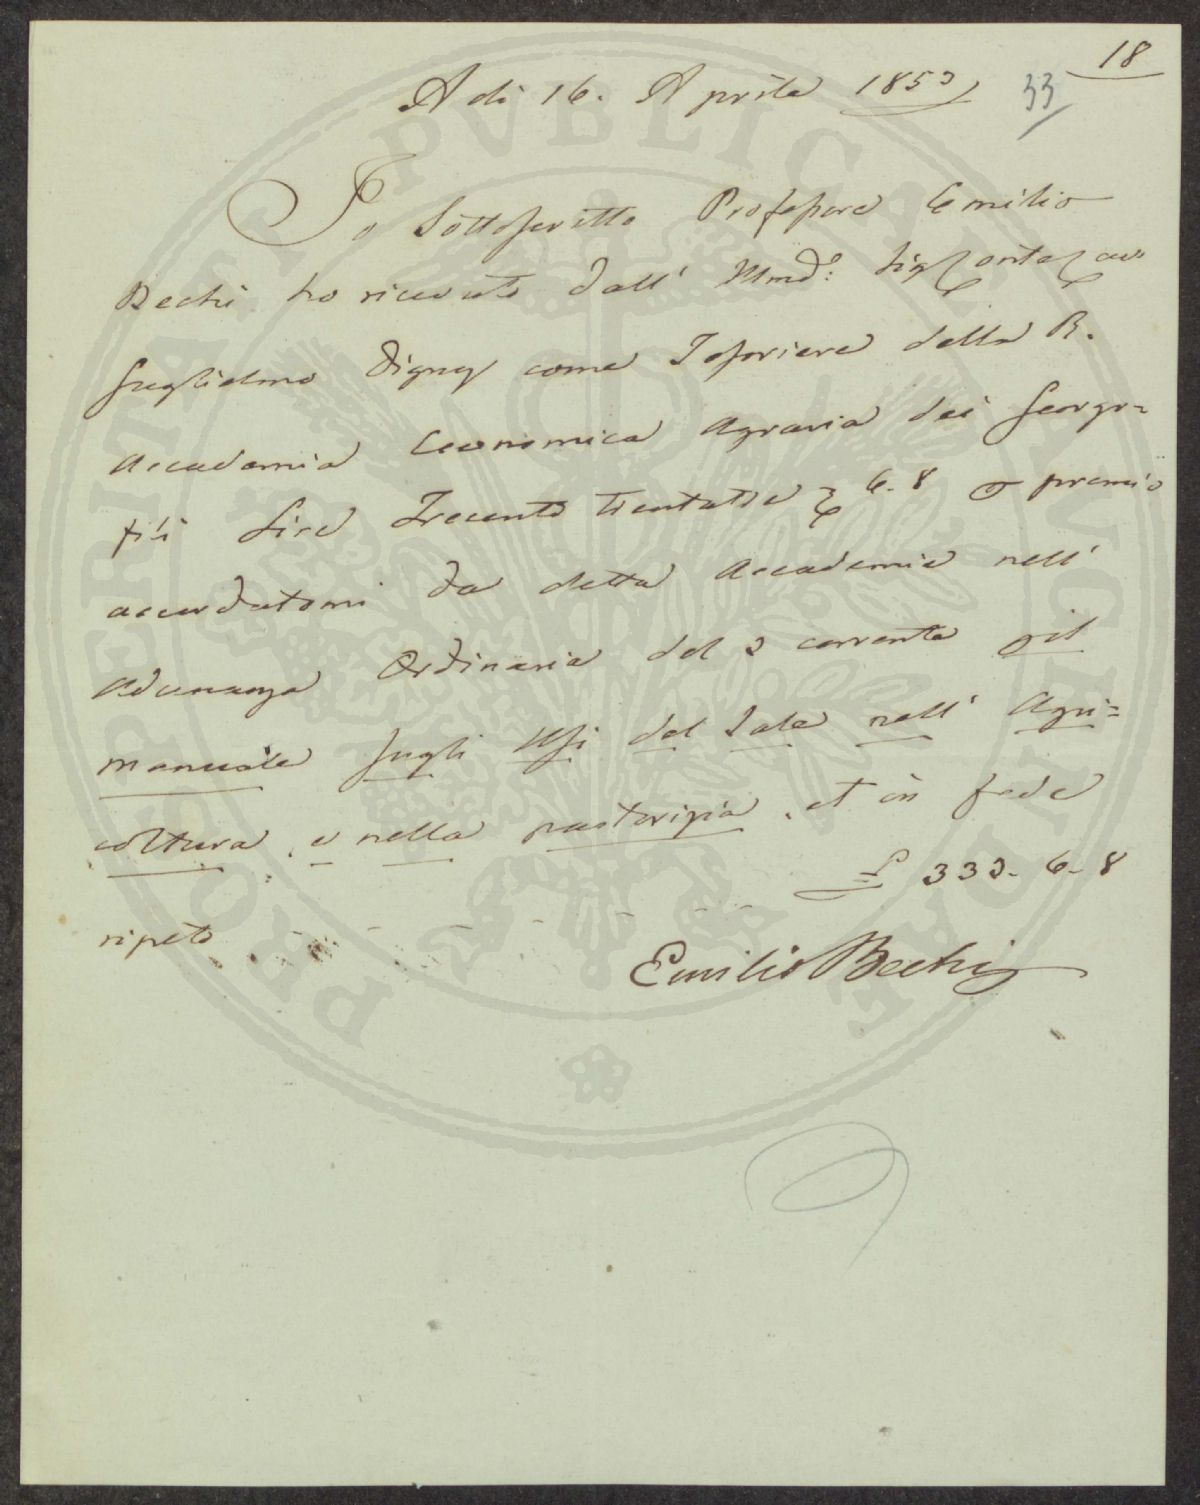 18
A dì 16. Aprile 1853
33
Io Sottoscritto Professore Emilio
Bechi ho ricevuto dall' Illmo: Sig Conte Cav
Guglielmo Digny come Tesoriere della R.
Accademia Economica Agraria dei Georgo=
fili Lire Trecento Trentatre 6. 8 premio
accordatomi da detta Accademia nell'
Adunanza Ordinaria del 3 corrente pil
manuale sugli Usi del Sale nell' Agri=
coltura, e nella pastorizia. et in fede
£ 333. 6. 8
ripeto
Emilio Bechi
PROSPERITATI PVBLICAE AVGENDAE